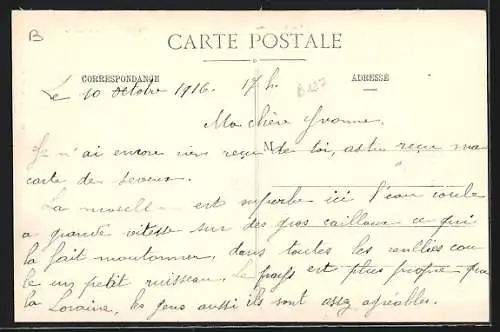 B
CARTE POSTALE
CORRESPONDANCE ADRESSE
Le 10 octobre 1916. 17 h.
Ma chère Yvonne,
Je n'ai encore rien reçu de toi, as tu reçu ma
carte de
La moselle est superbe ici l'eau coule
a grande vitesse sur des gros cailloux ce qui
la fait moutonner, dans toutes les vallées cou
le un petit ruisseau. Le pays est plus propre que
la Loraine, les gens aussi ils sont assez agréables.